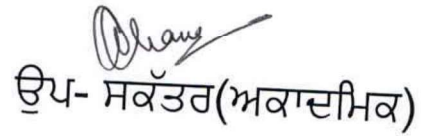 ਉਪ- ਸਕੱਤਰ(ਅਕਾਦਮਿਕ)